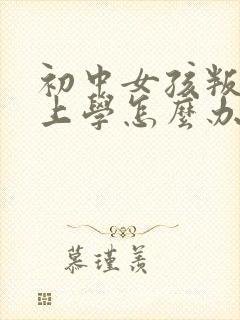 初中女孩叛
上學怎麼办
慕瑾羡